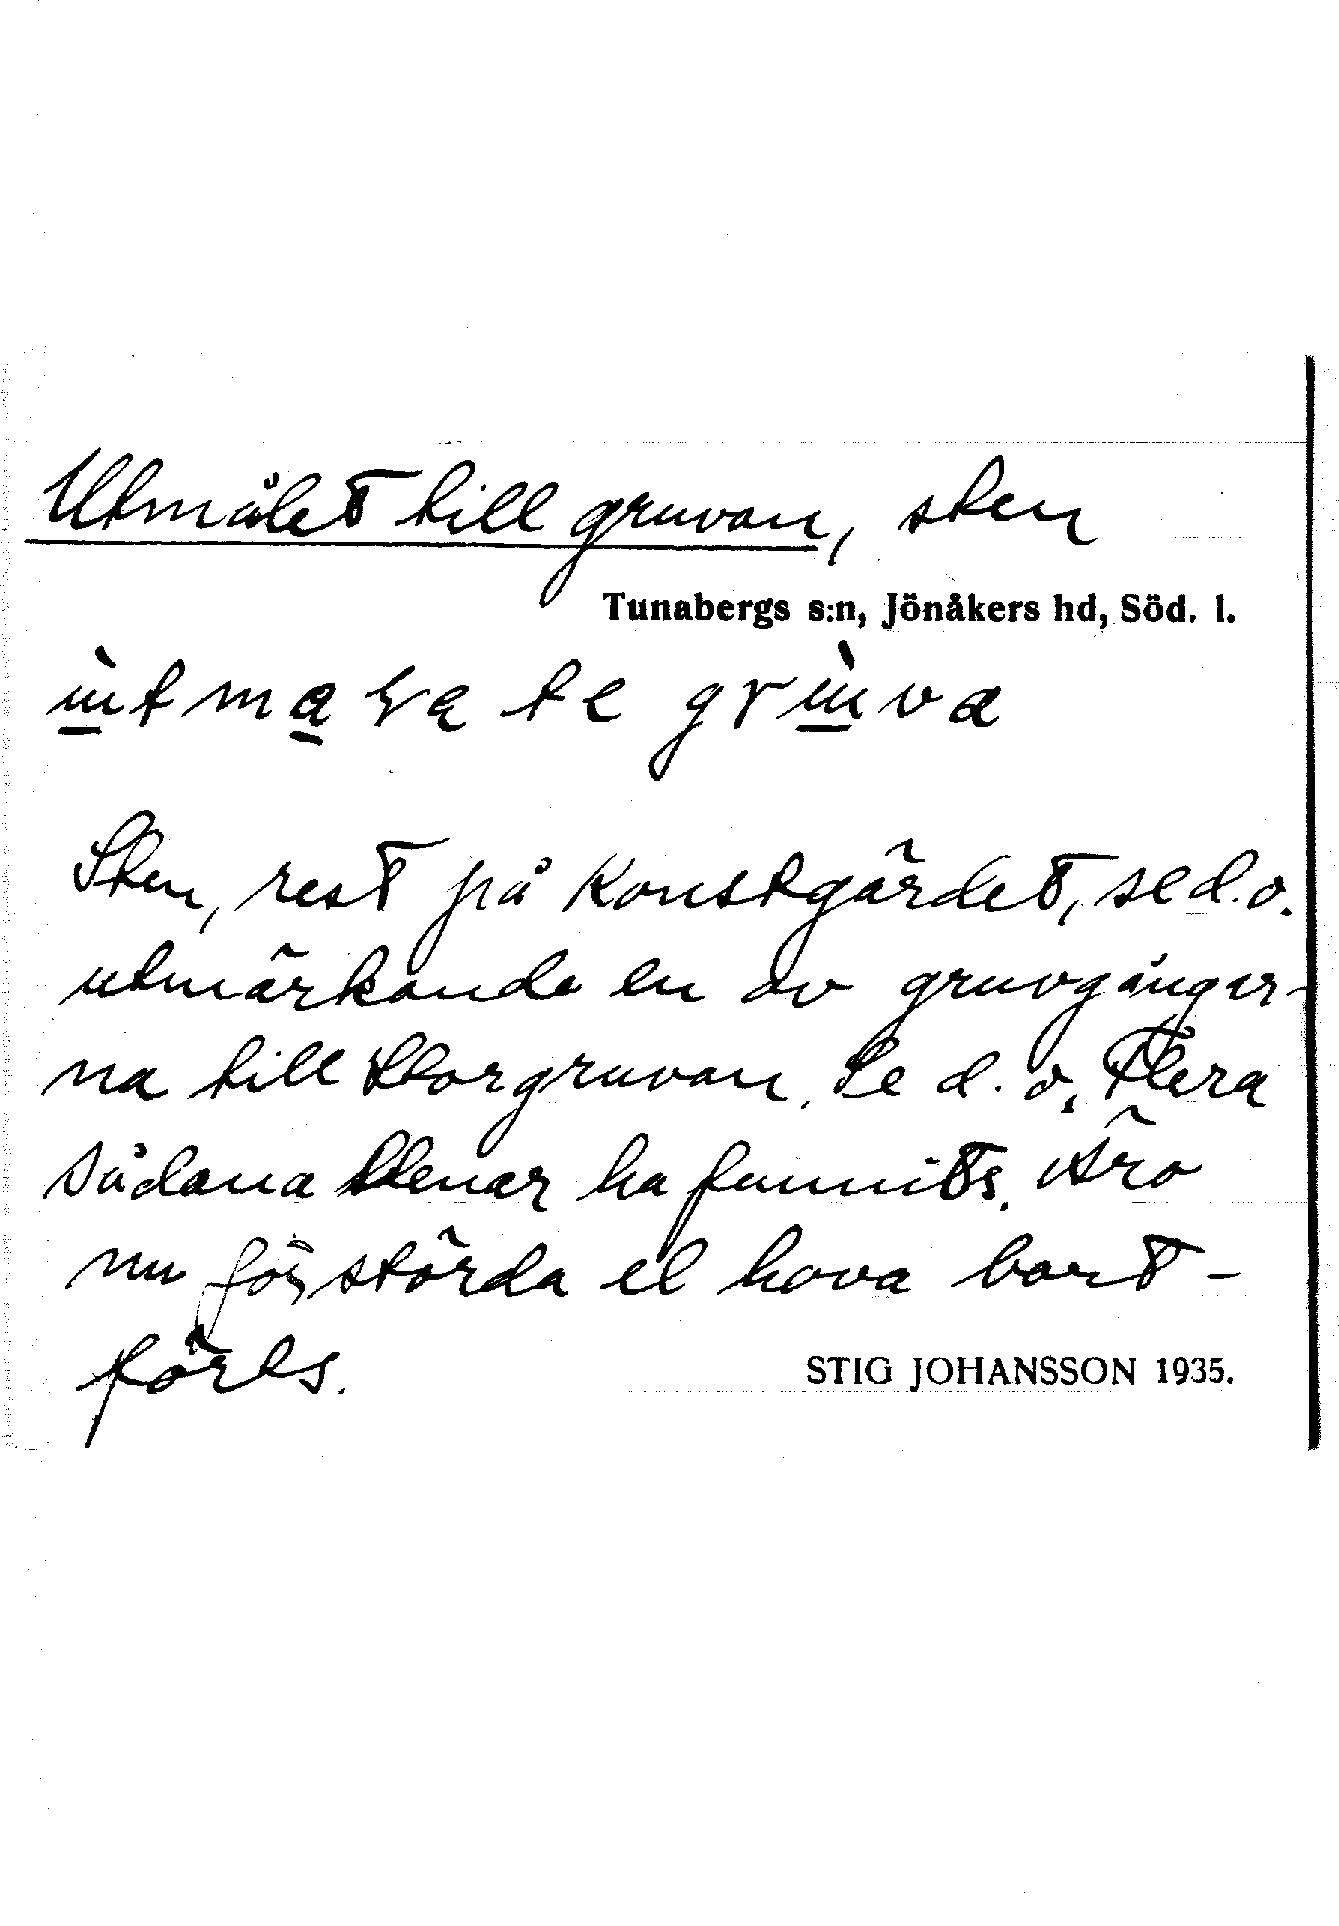 Utmålet till gruvan, sten
Tunabergs s:n, Jönåkers hd, Söd. l.
te
Sten, rest på Konstgärdet, se d.o.
utmärkande en av gruvgångar-
na till Storgruvan. Se d.o. Flera
sådana stenar ha funnits. Äro
nu förstörda el hava bort-
förts.
STIG JOHANSSON 1935.